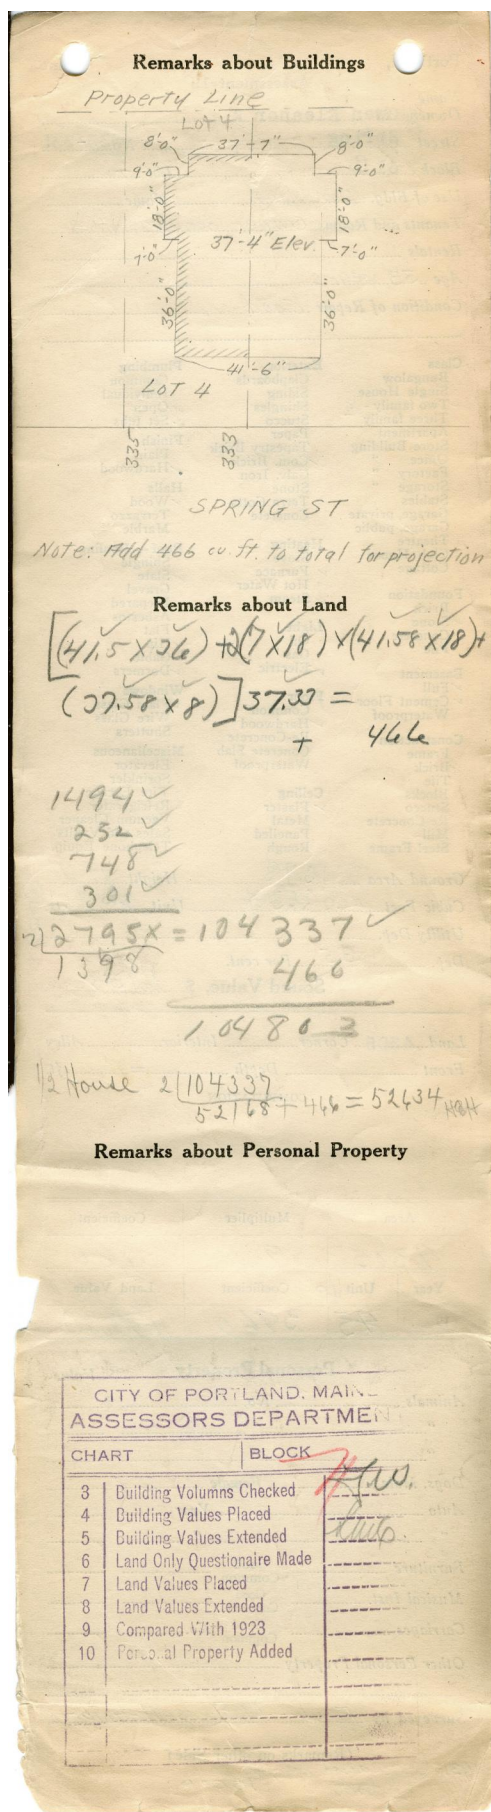 Remarks about Buildings
Property Line
Lot 4
8'-0" 37'-7" 8'-0"
9'-0" 9'-0"
18'-0" 18'-0"
7'-0" 37'-4" Elev. 7'-0"
36'-0" 36'-0"
41'-6"
LOT 4
335 333
SPRING ST
Note: Add 466 cu. ft. to total for projection
Remarks about Land
[(41.5 X 36) + 2(7 X 18) X (41.58 X 18) +
(37.58 X 8)] 37.33 =
+ 466
1494 ✓
252 ✓
748 ✓
301 ✓
2)2795 X = 104337 ✓
1398 466
104803
1/2 House 2)104337
52168 + 466 = 52634
Remarks about Personal Property
CITY OF PORTLAND, MAIN
ASSESSORS DEPARTMEN
CHART BLOCK
3 Building Volumns Checked
4 Building Values Placed
5 Building Values Extended
6 Land Only Questionaire Made
7 Land Values Placed
8 Land Values Extended
9 Compared With 1923
10 Personal Property Added